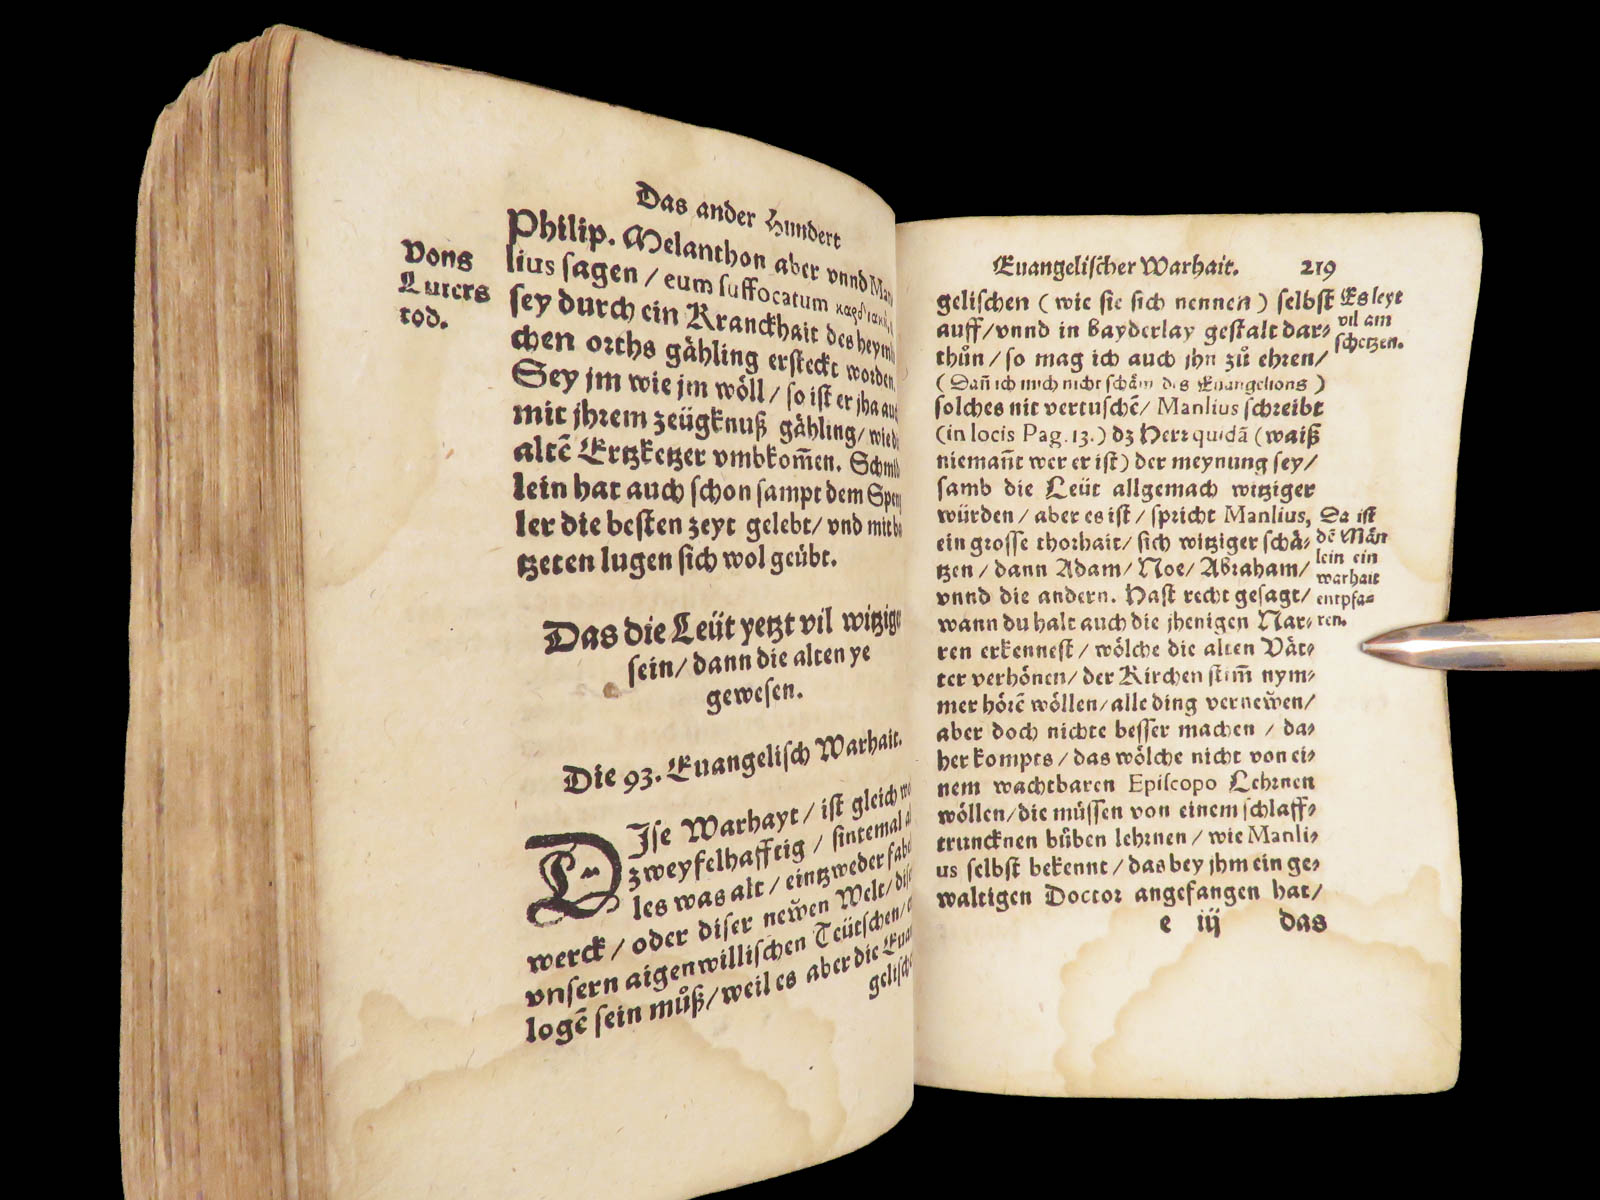 Das ander Hundert
Vons
Luters
tod.
Philip. Melanthon aber vnnd
lius sagen / eum suffocatum
sey durch ein Kranckhait des heym
chen orths gähling ersteckt worden.
Sey jm wie jm wöll / so ist er jha
mit jhrem zeügknuß gähling / wie
altē Ertzketzer vmbkom̄en.
lein hat auch schon sampt dem
ler die besten zeyt gelebt / vnd mit
tzeten lugen sich wol geübt.
Das die Leüt yetzt vil witzige
sein / dann die alten ye
gewesen.
Die 93. Euangelisch Warhait.
DIse Warhayt / ist gleich
zweyfelhafftig / sintemal
les was alt / eintzweder
werck / oder diser newen Welt /
vnsern aigenwillischen Teütschen /
logē sein můß / weil es aber die
gelisch
Euangelischer Warhait. 219
gelischen ( wie sie sich nennen ) selbst
auff / vnnd in bayderlay gestalt dar⸗
thůn / so mag ich auch jhn zů ehren /
( Dañ ich mich nicht schäm des Euangelions )
solches nit vertuschē / Manlius schreibt
(in locis Pag. 13.) dz Herr quidā (waiß
niemañt wer er ist) der meynung sey /
samb die Leüt allgemach witziger
würden / aber es ist / spricht Manlius,
ein grosse thorhait / sich witziger schä⸗
tzen / dann Adam / Noe / Abraham /
vnnd die andern. Hast recht gesagt /
wann du halt auch die jhenigen Nar⸗
ren erkennest / wölche die alten Vät⸗
ter verhönen / der Kirchen stim̄ nym⸗
mer hörē wöllen / alle ding vernewen /
aber doch nichte besser machen / da⸗
her kompts / das wölche nicht von ei⸗
nem wachtbaren Episcopo Lehrnen
wöllen / die müssen von einem schlaff⸗
truncknen bůben lehrnen / wie Manli⸗
us selbst bekennt / das bey jhm ein ge⸗
waltigen Doctor angefangen hat /
e iij das
Es leyt
vil am
schetzen.
Da ist
dē Män
lein ein
warhait
entpfa⸗
ren.